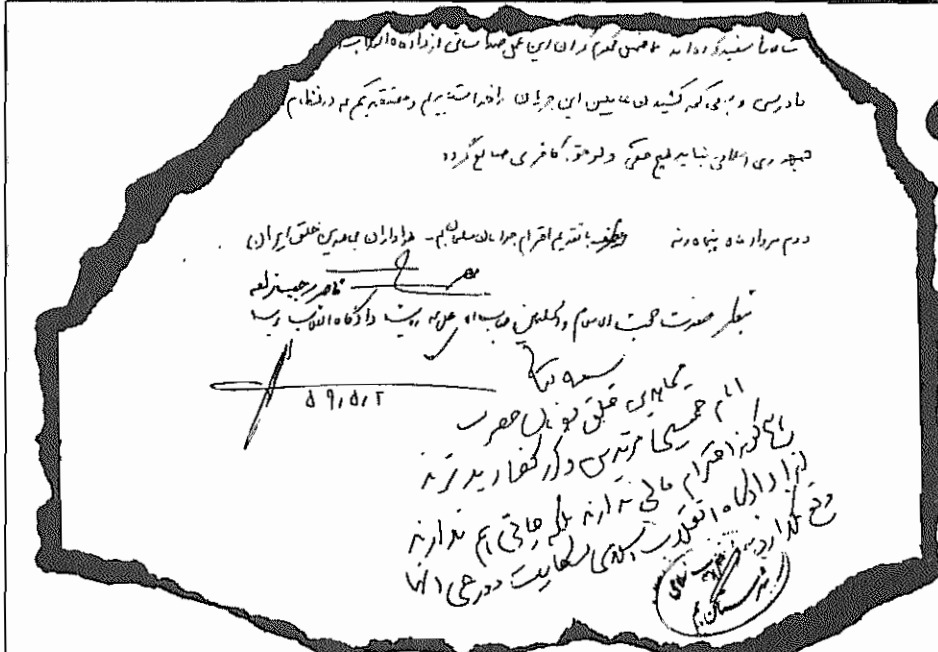 شما سفید کرده‌اند ما ضمن محکوم کردن این عمل ضد انسانی از دادگاه انقلاب
دادرسی و به محاکمه کشیدن عاملین این جریان را خواستاریم و معتقدیم که در نظام
جمهوری اسلامی نباید هیچ حقی ولو حق کافری ضایع گردد
دوم مرداد ماه پنجاه و نه با تقدیم احترام جوانان مسلمان بم - هواداران مجاهدین خلق ایران
ناصر
حضرت حجت الاسلام دادگاه انقلاب
۵۹،۵،۲
بسمه تعالی
مجاهدین خلق بفرمان حضرت
امام خمینی مرتدین و از کفار بدترند
هیچگونه احترام مالی ندارند بلکه جانی هم ندارند
لذا دادگاه انقلاب اسلامی شکایت دروغی آنها
وقع نگذارد
شهرستان بم